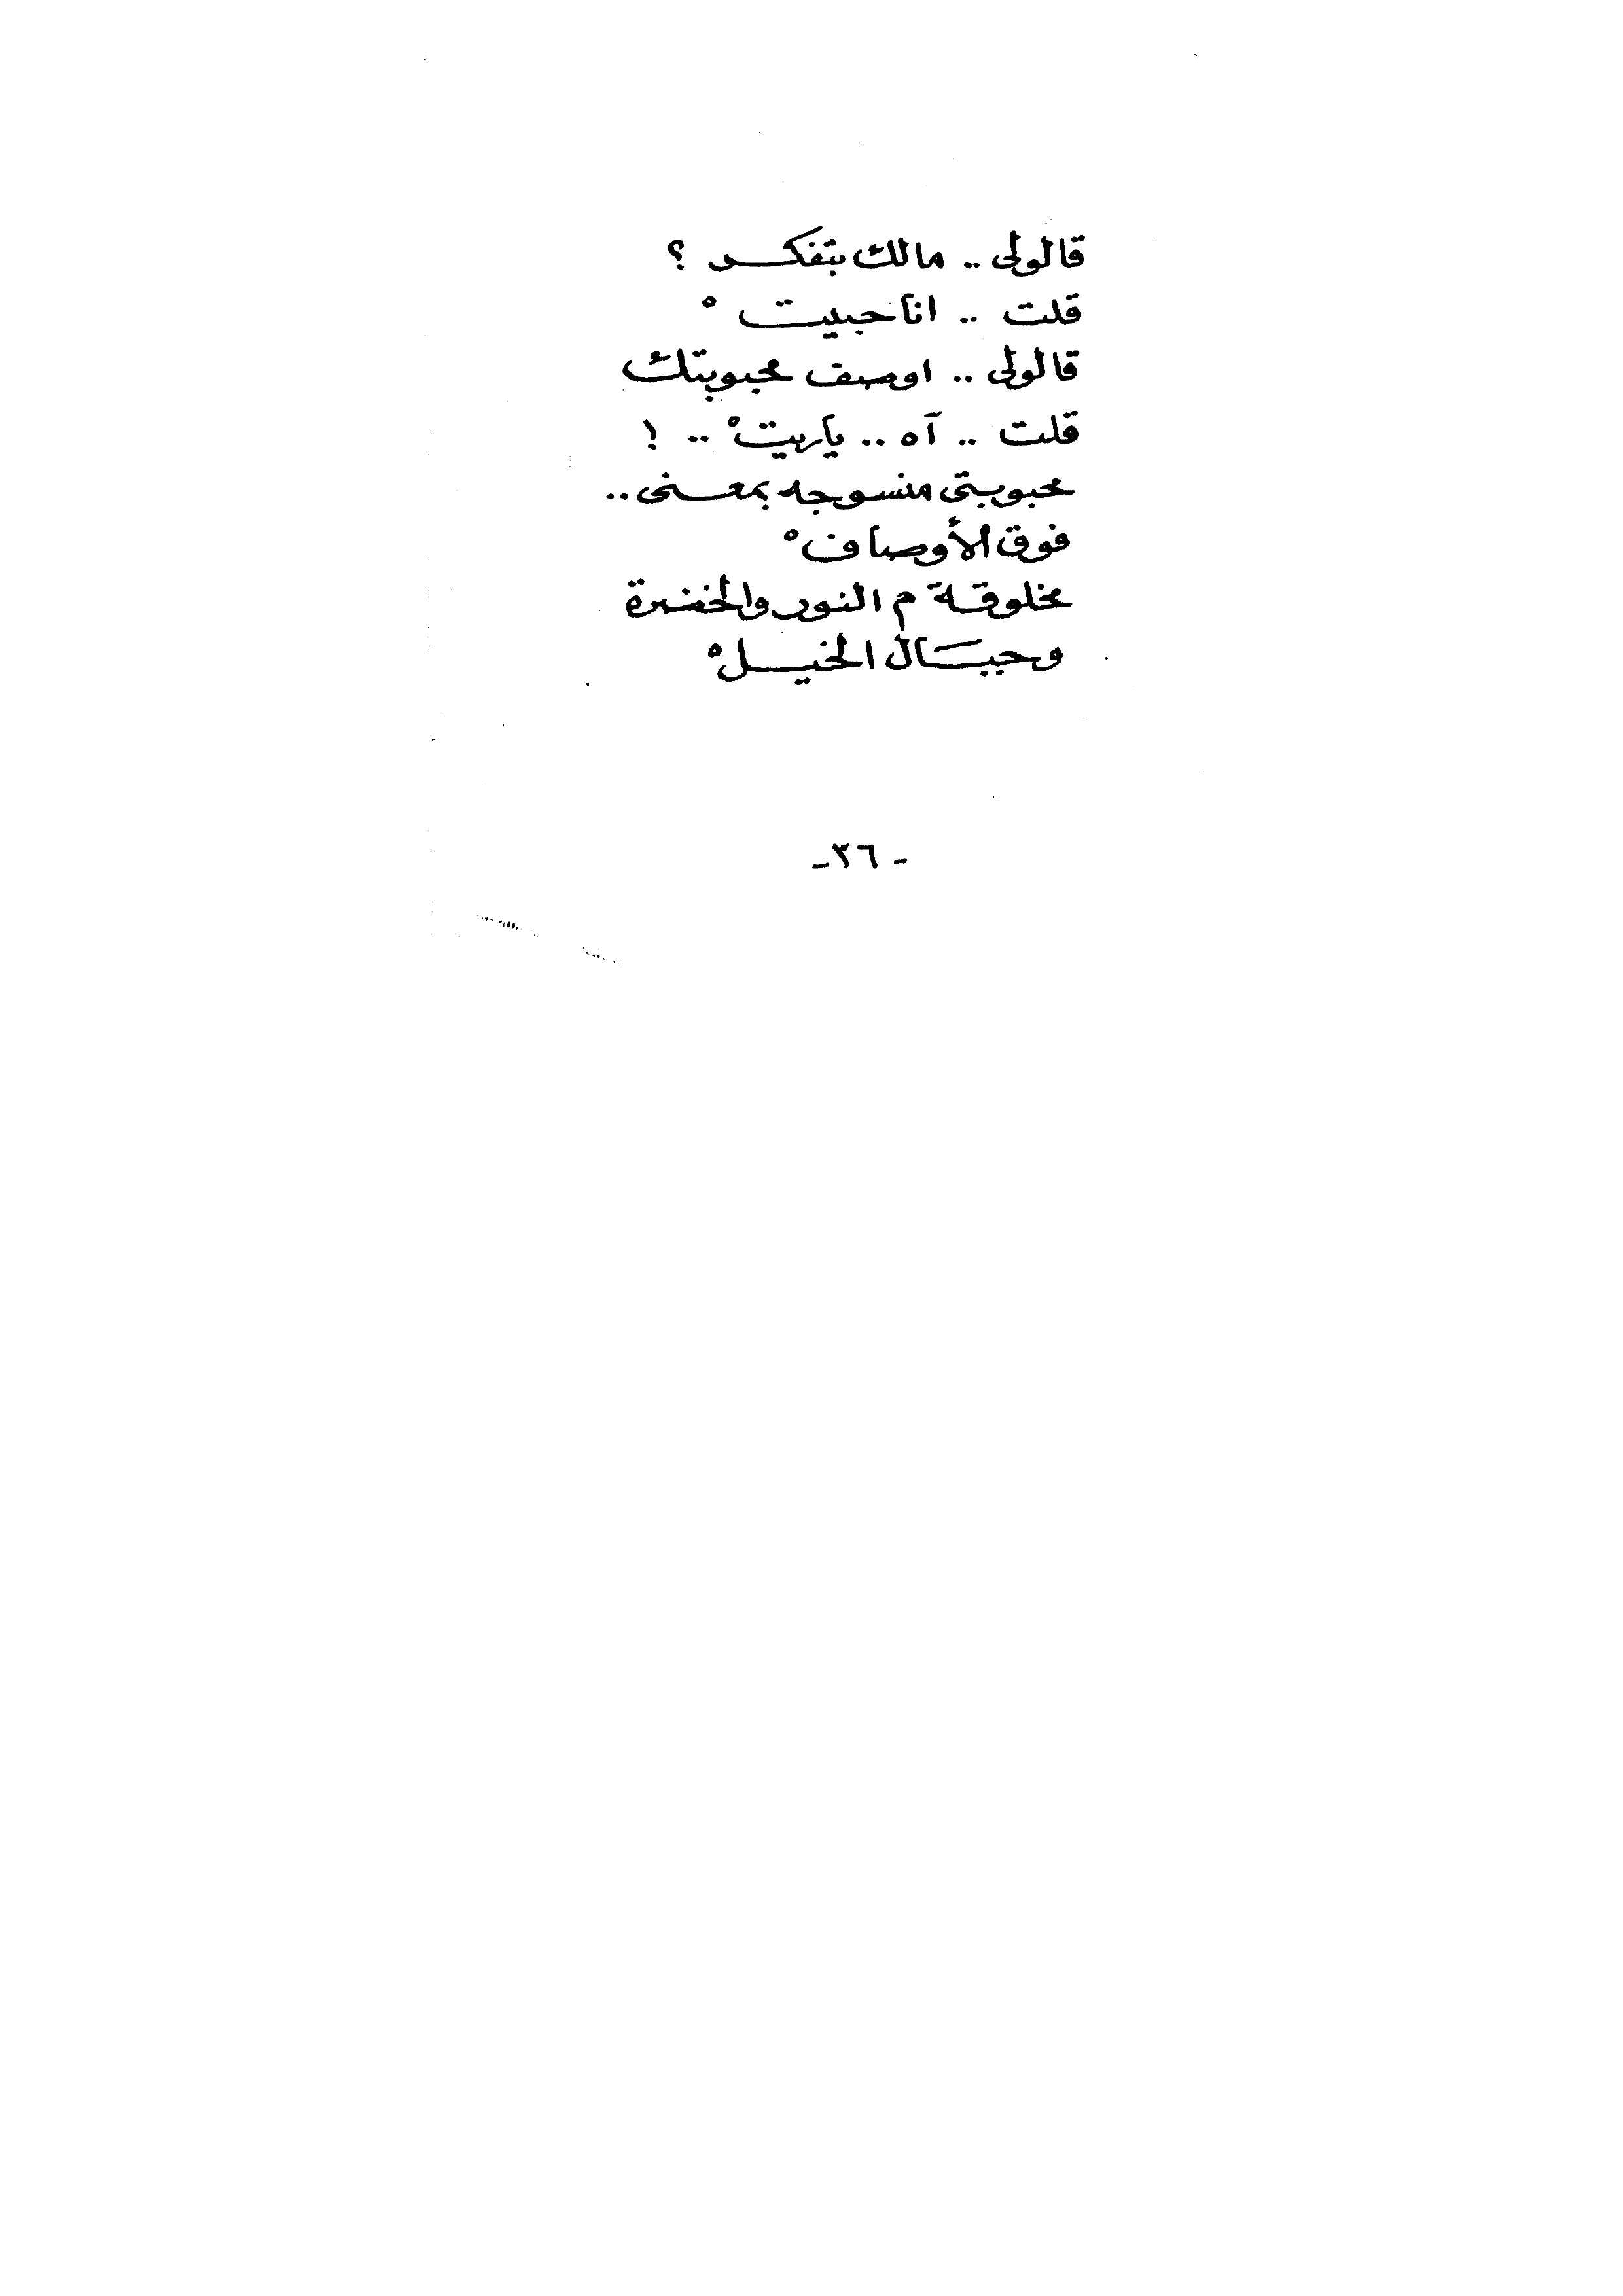 قالولى .. مالك بتفكر ؟
قلت .. انا حبيتْ
قالولى .. اوصف محبوبتك
قلت .. آه .. ياريتْ .. !
محبوبتى منسوجه بمعنى ..
فوق الأوصافْ
مخلوقة م النور والخضرة
وحبَال النخيلْ
- ٣٦ -